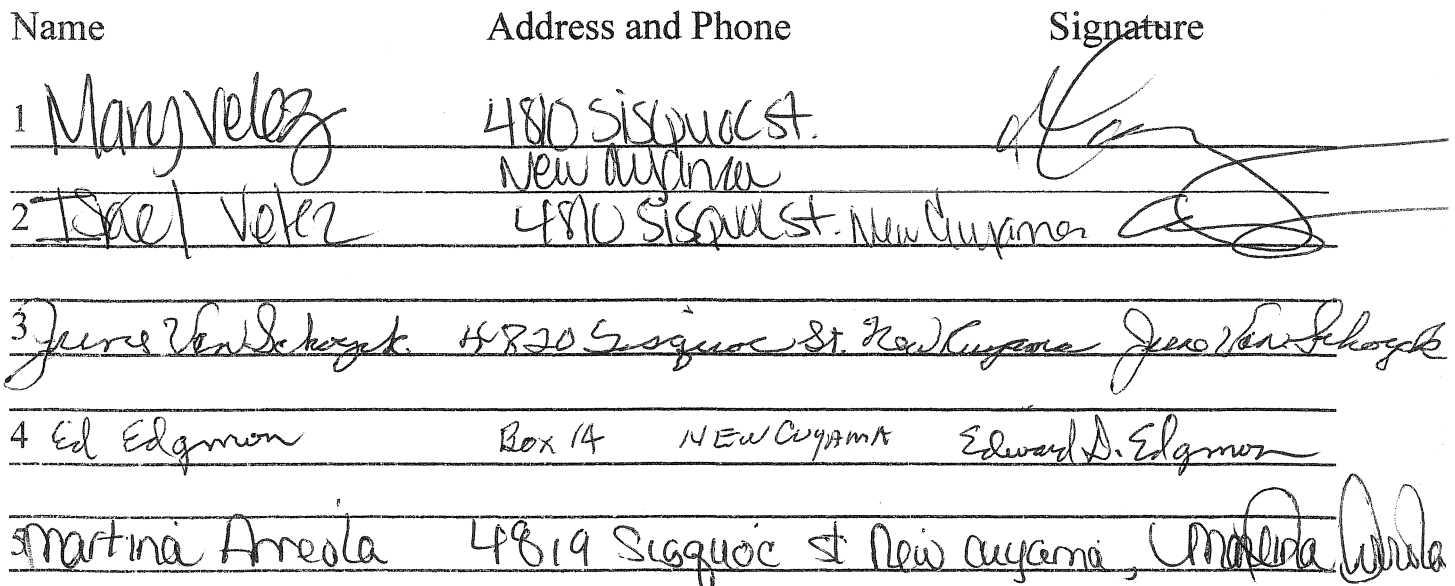 Name Address and Phone Signature
1 Mary Velez 4810 Sisquoc St.
New Cuyama
2 Isael Velez 4810 Sisquoc St. New Cuyama
3 June Van Schoyck. 4820 Sisquoc St. New Cuyama June Van Schoyck
4 Ed Edgmon Box 14 NEW CUYAMA Edward D. Edgmon
5 Martina Arreola 4819 Sisquoc st New cuyama, Martina Arreola